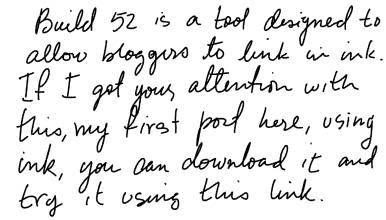 Build 52 is a tool designed to
allow bloggers to link in ink.
If I got your attention with
this, my first post here, using
ink, you can download it and
try it using this link.